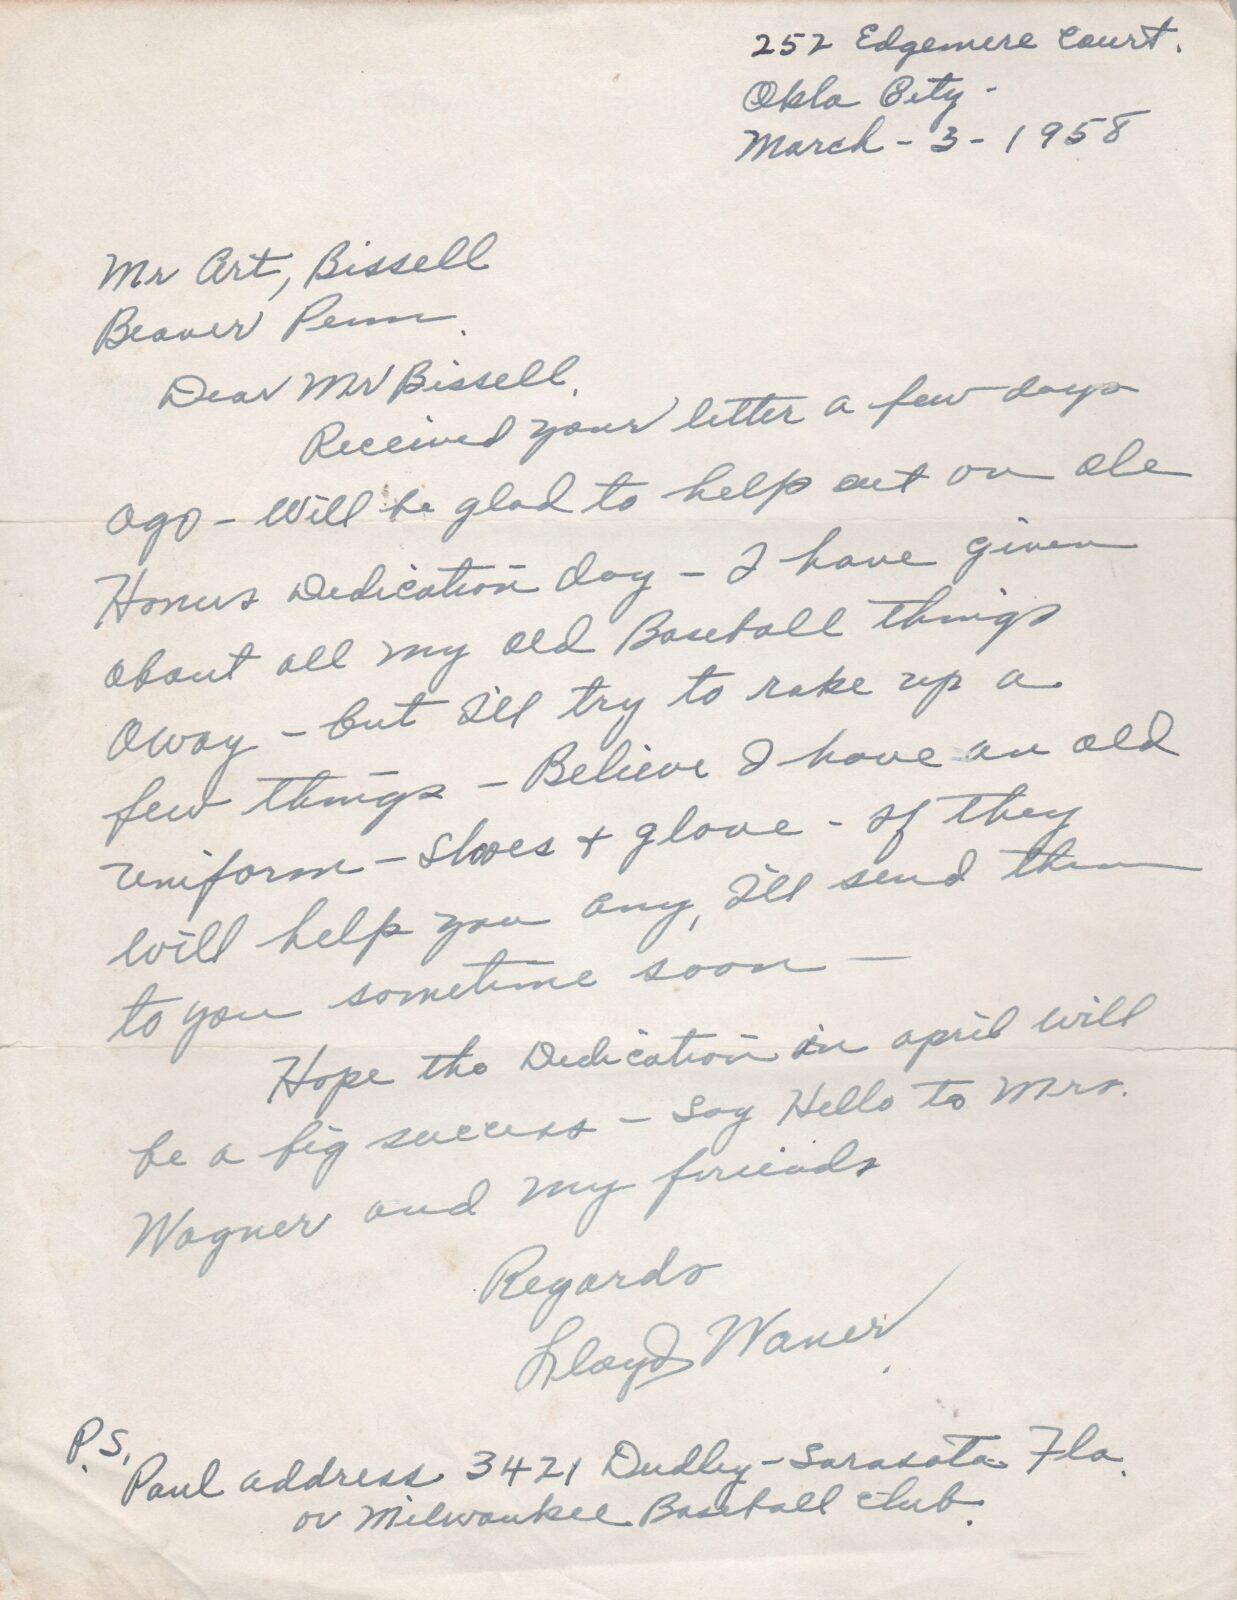 252 Edgemere Court.
Okla City -
March - 3 - 1958
Mr Art, Bissell
Beaver Penn.
Dear Mr Bissell,
Received your letter a few days
ago - Will be glad to help out on ole
Honus Dedication day - I have given
about all my old Baseball things
away - but I'll try to rake up a
few things - Believe I have an old
uniform - Shoes + glove - If they
will help you any, I'll send them
to you sometime soon -
Hope the Dedication in april will
be a big success - Say Hello to Mrs.
Wagner and my friends
Regards
Lloyd Waner
P.S.
Paul address 3421 Dudley - Sarasota Fla.
or Milwaukee Baseball Club.